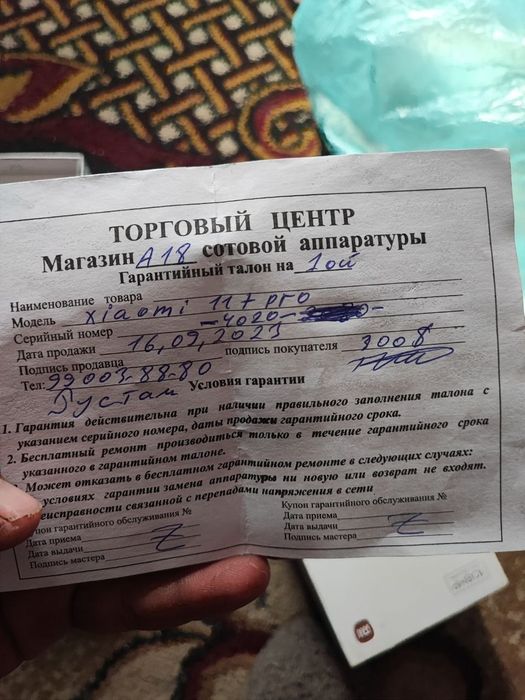 ТОРГОВЫЙ ЦЕНТР
Магазин А18 сотовой аппаратуры
Гарантийный талон на 1ой
Наименование товара
Модель xiaomi 11Tpro
Серийный номер -4020-
Дата продажи 16,09,2023
Подпись продавца подпись покупателя 3008
Тел: 99003-88-80
Рустам Условия гарантии
1. Гарантия действительна при наличии правильного заполнения талона с
указанием серийного номера, даты продажи гарантийного срока.
2. Бесплатный ремонт производиться только в течение гарантийного срока
указанного в гарантийном талоне.
Может отказать в бесплатном гарантийном ремонте в следующих случаях:
условиях гарантии замена аппаратуры ни новую или возврат не входят.
еисправности связанной с перепадами напряжения в сети
упон гарантийного обслуживания №
Дата приема
Дата выдачи
Подпись мастера
Купон гарантийного обслуживания №
Дата приема
Дата выдачи
Подпись мастера